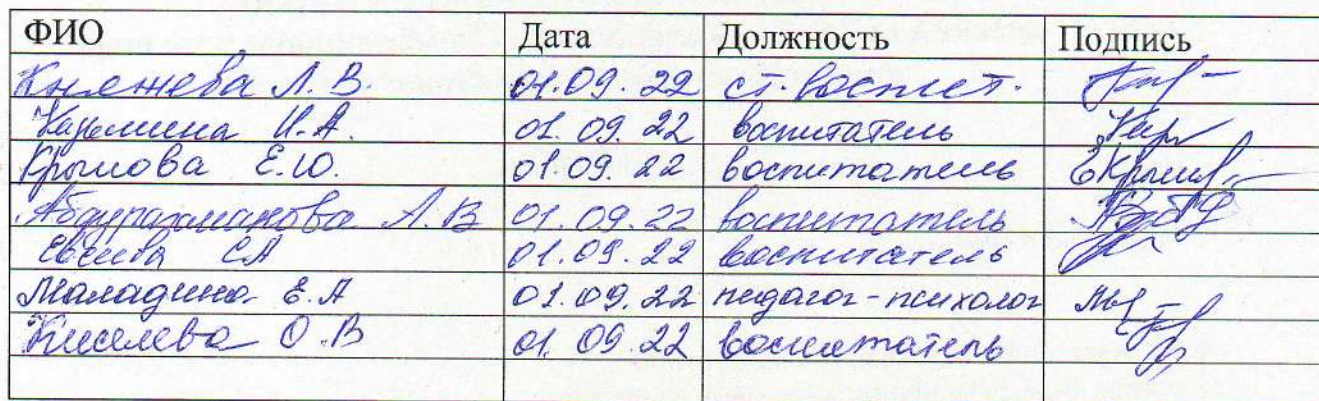 ФИО Дата Должность Подпись
Княжева Л. В. 01.09.22 ст. воспит.
И.А. 01.09.22 воспитатель
Крымова Е.Ю. 01.09.22 воспитатель
Абдурахманова Л.В 01.09.22 воспитатель
Евсеева ЕА 01.09.22 воспитатель
Маладина Е.А 01.09.22 педагог-психолог
Киселева О.В 01.09.22 воспитатель